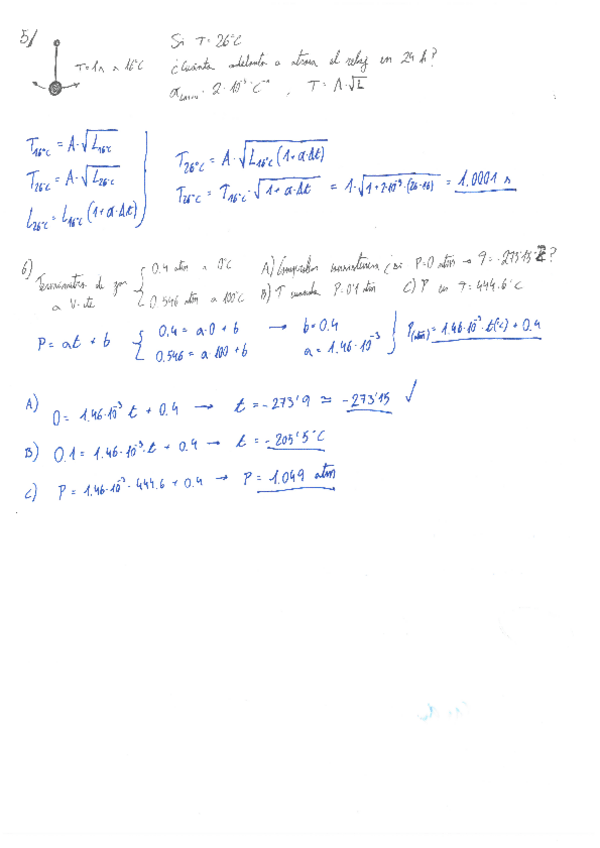 5/ T=1s a 16°C
Si T=26°C
¿Cuánto adelanta o atrasa el reloj en 24 h?
α = 2·10⁻⁵ °C⁻¹, T = A·√L
T₁₆°C = A·√L₁₆°C
T₂₆°C = A·√L₂₆°C
L₂₆°C = L₁₆°C (1+α·Δt)
T₂₆°C = A·√L₁₆°C (1+α·Δt)
T₂₆°C = T₁₆°C·√1+α·Δt = 1·√1+2·10⁻⁵·(26-16) = 1.0001 s
6) Termómetro de gas a V cte { 0.4 atm a 0°C
0.546 atm a 100°C
A) Comprobar ¿si P=0 atm → T=-273'15 ?
B) T cuando P=0'1 atm C) P en T=444.6°C
P = at + b { 0.4 = a·0 + b → b=0.4
0.546 = a·100 + b a = 1.46·10⁻³
P(atm) = 1.46·10⁻³·t(°C) + 0.4
A) 0 = 1.46·10⁻³ t + 0.4 → t = -273'9 ≃ -273'15 ✓
B) 0.1 = 1.46·10⁻³·t + 0.4 → t = -205'5°C
C) P = 1.46·10⁻³·444.6 + 0.4 → P = 1.049 atm